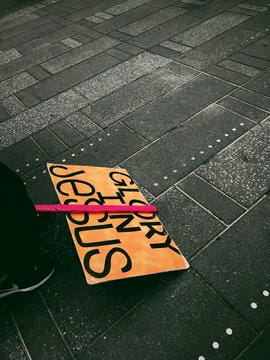 GLORY
IN
JesUS